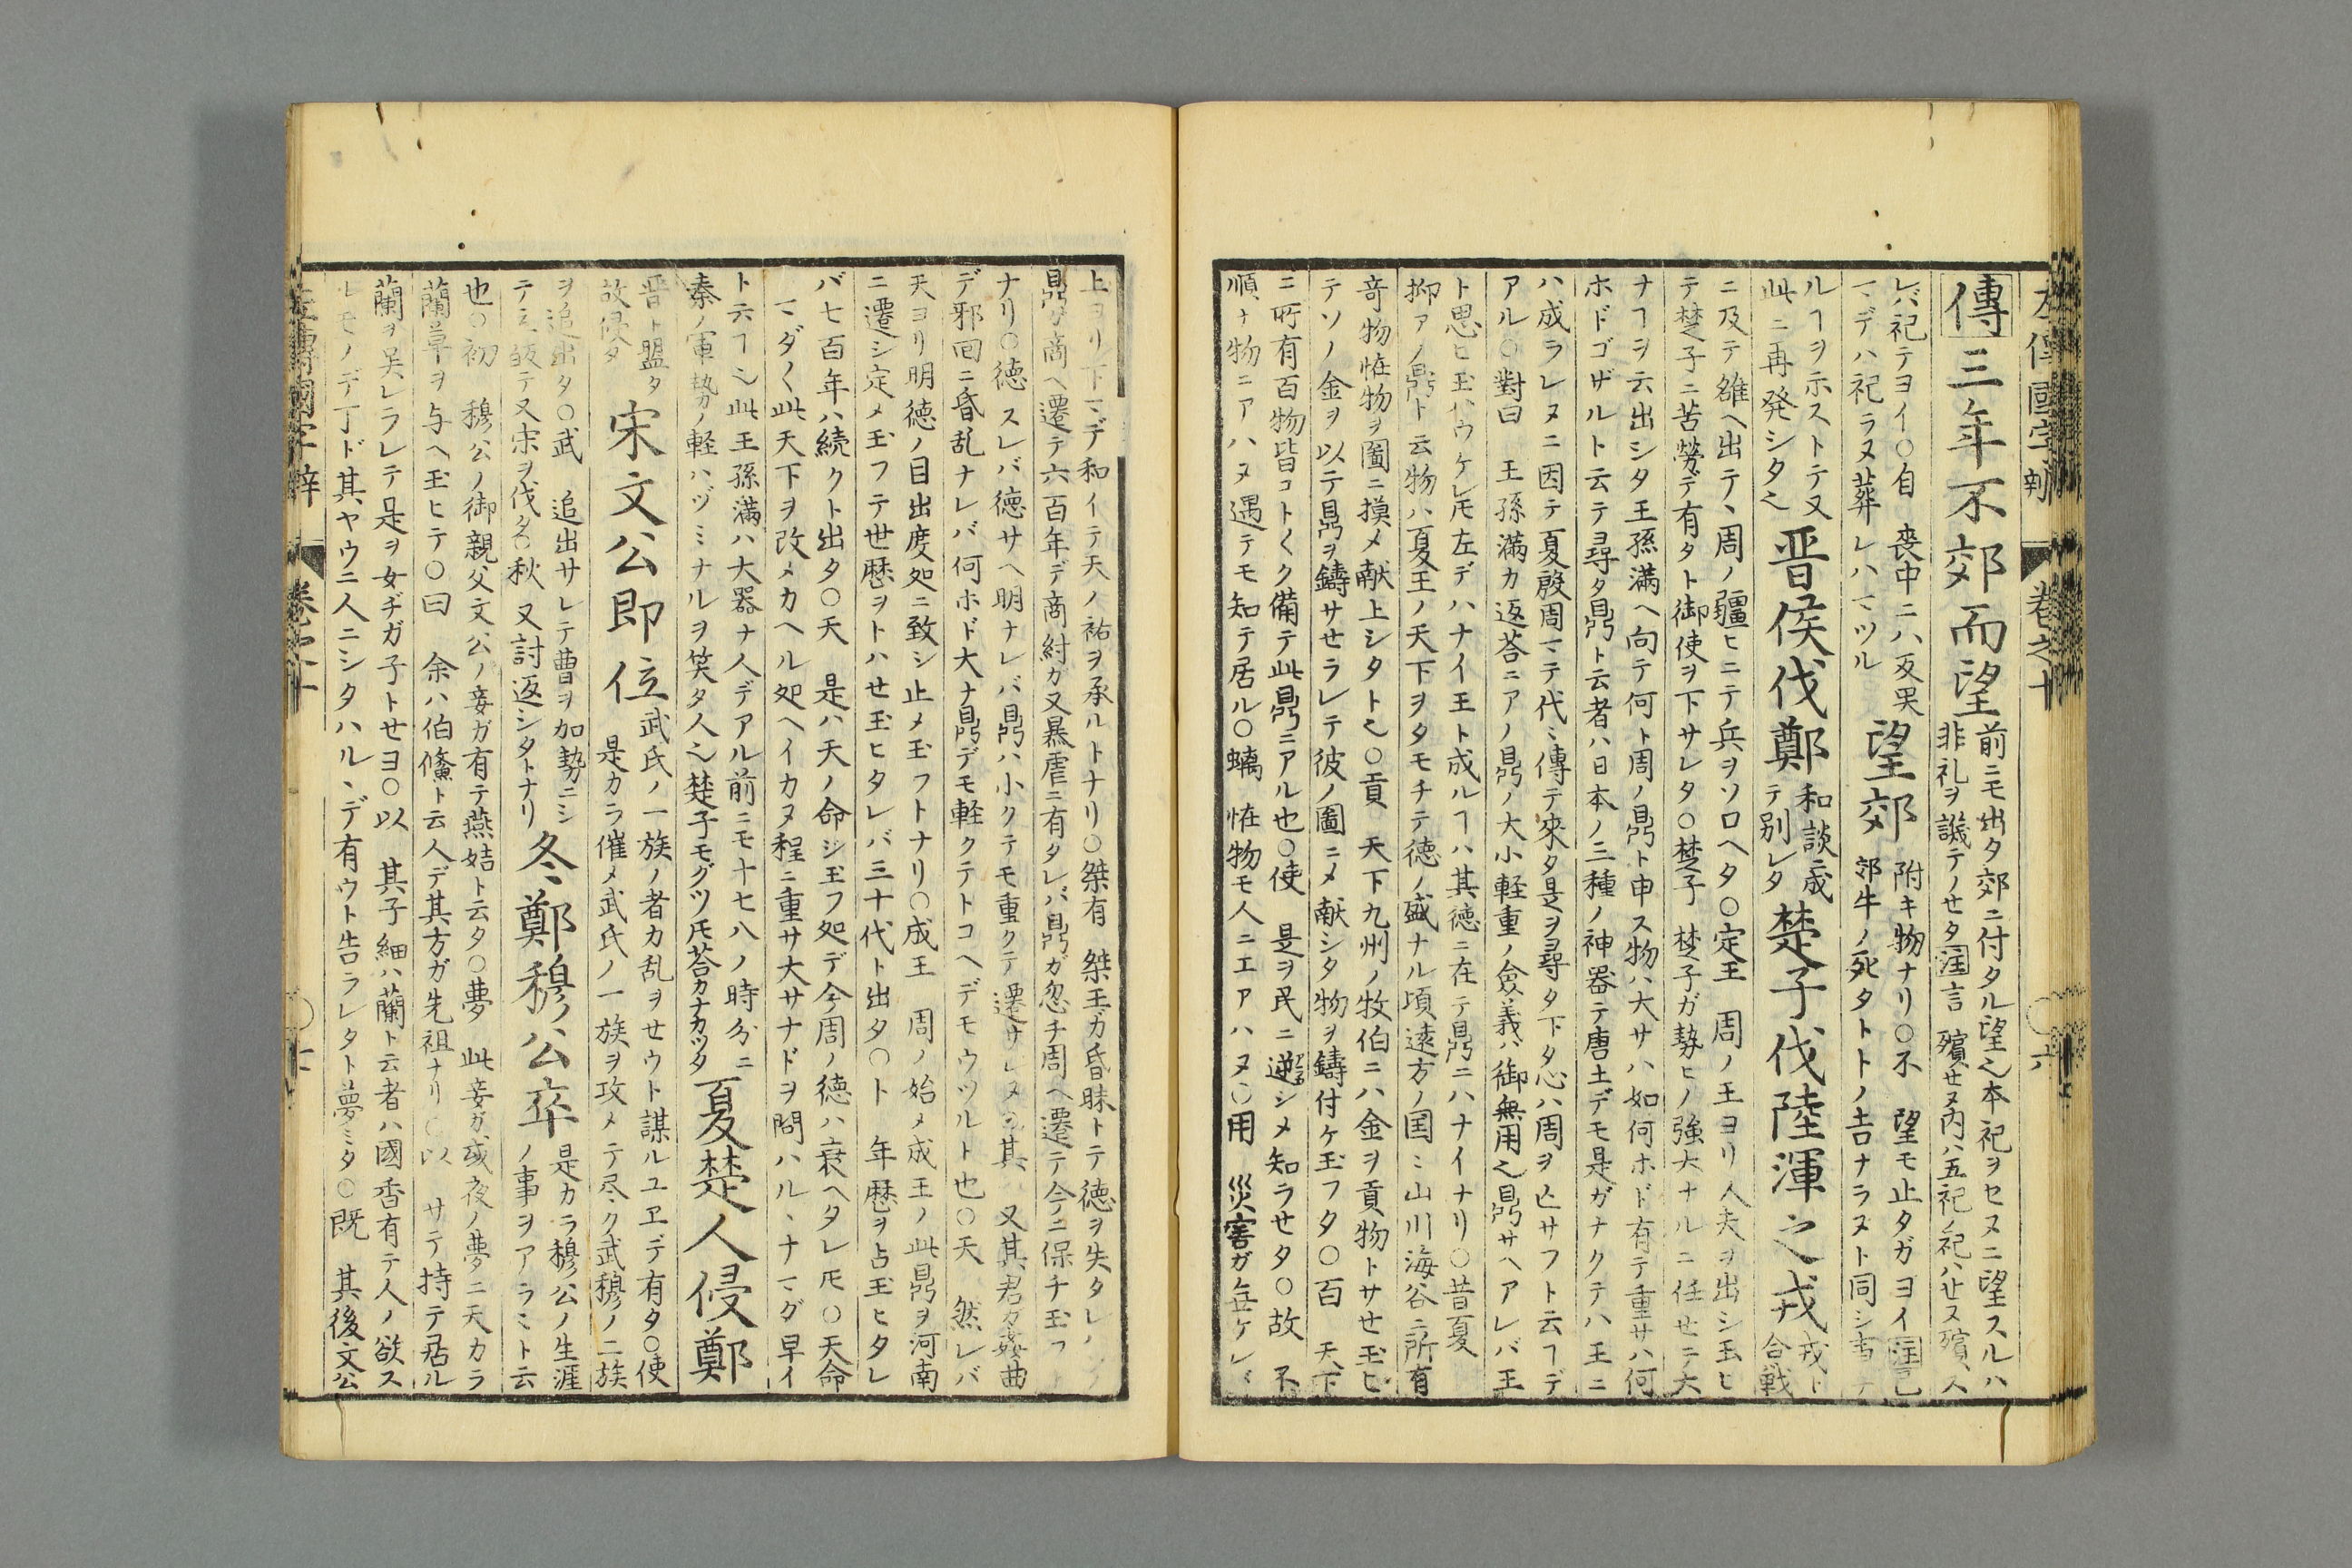 左傳國字辨　巻之十　六
傳三年不郊而望
前ニモ出タ郊ニ付タル望之本祀ヲセヌニ望スルハ
非礼ヲ譏テノせタ注言　殯せヌ内ハ五祀ノ祀ハせス殯ス
レバ祀テヨイ○自　喪中ニハ及
マデハ祀ラヌ葬レハマツル
望郊
附キ物ナリ○不　望モ止タガヨイ注已
郊牛ノ死タトトノ吉ナラヌト同シ
ルヿヲ示ストテ又
此ニ再発シタ之
晋侯伐鄭
和談成
テ別レタ
楚子伐陸渾之戎
戎ト
合戦
ニ及テ雒ヘ出テ、周ノ疆ヒニテ兵ヲソロヘタ○定王　周ノ王ヨリ人夫ヲ出シ玉ヒ
テ楚子ニ苦勞デ有タト御使ヲ下サレタ○楚子　楚子ガ勢ヒノ強大ナルニ任せテ大
ナヿヲ云出シタ王孫満ヘ向テ何ト周ノ鼎ト申ス物ハ大サハ如何ホド有テ重サハ何
ホドゴザルト云テ尋タ鼎ト云者ハ日本ノ三種ノ神器テ唐土デモ是ガナクテハ王ニ
ハ成ラレヌニ因テ夏殷周マテ代ミ傳テ來タ是ヲ尋タ下タ心ハ周ヲ亡サフト云ヿデ
アル○對曰　王孫満カ返荅ニアノ鼎ノ大小軽重ノ僉義ハ御無用之鼎サヘアレバ王
ト思ヒ玉ハウケレ𪜈左デハナイ王ト成ルヿハ其徳ニ在テ鼎ニハナイナリ○昔夏
抑アノ鼎ト云物ハ夏王ノ天下ヲタモチテ徳ノ盛ナル頃遠方ノ国ミ山川海谷ニ所有
奇物怪物ヲ圖ニ摸メ献上シタト之○貢　天下九州ノ牧伯ニハ金ヲ貢物トサせ玉ヒ
テソノ金ヲ以テ鼎ヲ鑄サせラレテ彼ノ圖ニメ献シタ物ヲ鑄付ケ玉フタ○百　天下
ニ所有百物皆コト〱ク備テ此鼎ニアル也○使　是ヲ民ニ逆シメ知ラせタ○故　不
順ナ物ニアハヌ遇テモ知テ居ル○螭　怪物モ人ニエアハヌ○用　災害ガ無ケレバ
上ヨリ下マデ和イテ天ノ祐ヲ承ルトナリ○桀有　桀王ガ昏昧トテ徳ヲ失タレハ
鼎ガ商ヘ遷テ六百年デ商紂カ又暴虐ニ有タレバ鼎ガ忽チ周ヘ遷テ今ニ保チ玉フ
ナリ○徳　スレバ徳サヘ明ナレバ鼎ハ小クテモ重クテ遷サレヌ○其　又其君ガ姦曲
デ邪回ニ昏乱ナレバ何ホド大ナ鼎デモ軽クテトコヘデモウツルト也○天　然レバ
天ヨリ明徳ノ目出度処ニ致シ止メ玉フトナリ○成王　周ノ始メ成王ノ此鼎ヲ河南
ニ遷シ定メ玉フテ世暦ヲトハせ玉ヒタレバ三十代ト出タ○ト　年暦ヲ占玉ヒタレ
バ七百年ハ続クト出タ○天　是ハ天ノ命ジ玉フ処デ今周ノ徳ハ衰ヘタレ𪜈○天命
マダ〱此天下ヲ改メカヘル処ヘイカヌ程ニ重サ大サナドヲ問ハル、ナマダ早イ
ト云ヿ之此王孫満ハ大器ナ人デアル前ニモ十七八ノ時分ニ
秦ノ軍勢ノ軽ハヅミナルヲ笑タ人之楚子モグツ𪜈荅カナカツタ
夏楚人侵鄭
晋ト盟タ
故侵タ
宋文公即位
武氏ノ一族ノ者カ乱ヲせウト謀ルユヱデ有タ○使
是カラ催メ武氏ノ一族ヲ攻メテ尽ク武穆ノ二族
ヲ追出タ○武　追出サレテ曹ヲ加勢ニシ
テ又宋ヲ伐タ○秋　又討返シタトナリ
冬鄭穆公卒
是カラ穆公ノ生涯
ノ事ヲアラミト云
也○初　穆公ノ御親父文公ノ妾ガ有テ燕姞ト云タ○夢　此妾ガ或夜ノ夢ニ天カラ
蘭草ヲ与ヘ玉ヒテ○曰　余ハ伯鯈ト云人デ其方ガ先祖ナリ○以　サテ持テ居ル
蘭ヲ呉レラレテ是ヲ女ヂガ子トせヨ○以　其子細ハ蘭ト云者ハ國香有テ人ノ欲ス
ルモノデ丁ド其ヤウニ人ニシタハル、デ有ウト告ラレタト夢ミタ○既　其後文公
左傳國字辨　巻之十